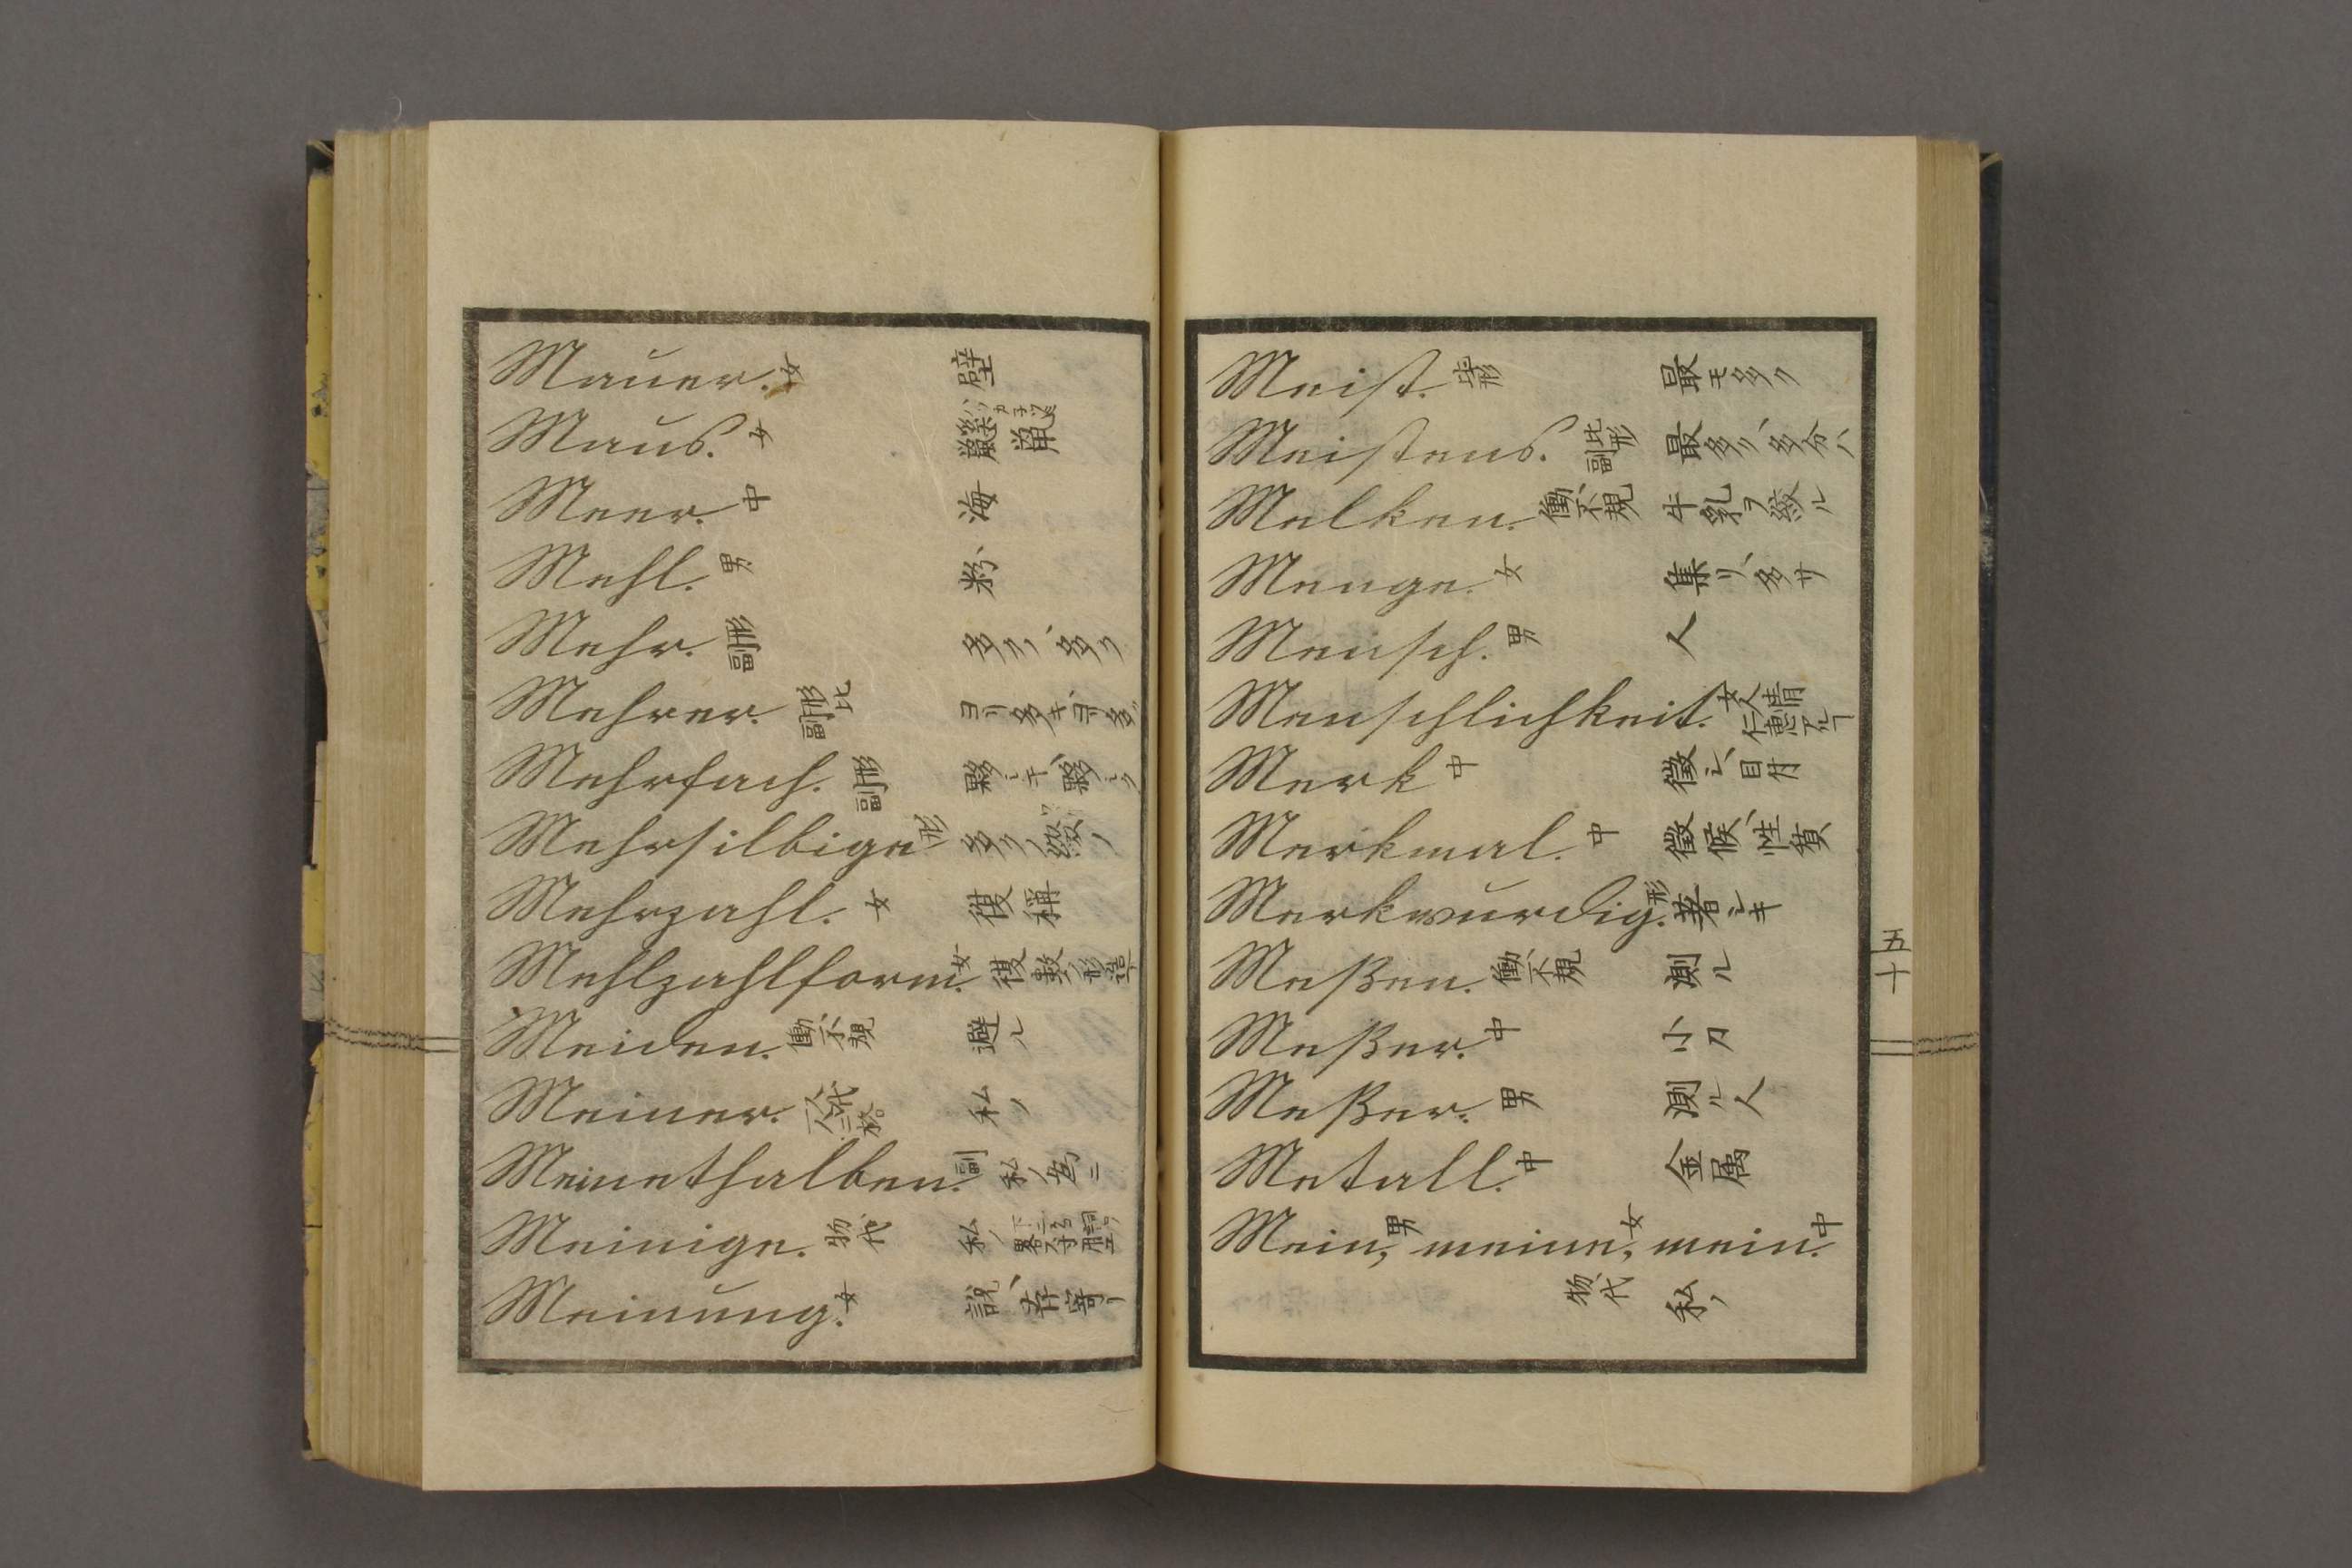 Mauer. 女 壁
Maus. 女 鼠
Meer. 中 海
Mehl. 男 粉
Mehr. 形副 多ク、多ク
Mehrer. 比形副 ヨリ多キ
Mehrfach. 形副 夥シキ、夥シク
Mehrsilbige 形 多クノ綴ノ
Mehrzahl. 女 復稱
Mehlzahlform. 女 復數ノ形造
Meiden. 働、不規 避ル
Meiner. 私ノ
Meinethalben. 副 私ノ為ニ
Meinige. 物、代 私ノ
Meinung. 女 說、存寄リ
Meist. 比形 最モ多ク
Meistens. 比形副 最多ク、多分ハ
Melken. 働、不規 牛乳ヲ絞ル
Menge. 女 集リ、多サ
Mensch. 男 人
Menschlichkeit. 女 人情 仁惠
Merk 中 徴シ、目付
Merkmal. 中 徴候、性質
Merkwürdig. 形 著シキ
Meßen. 働、不規 測ル
Meßer. 中 小刀
Meßer. 男 測ル人
Metall. 中 金属
Mein, 男 meine, 女 mein. 中
物、代 私ノ
五十